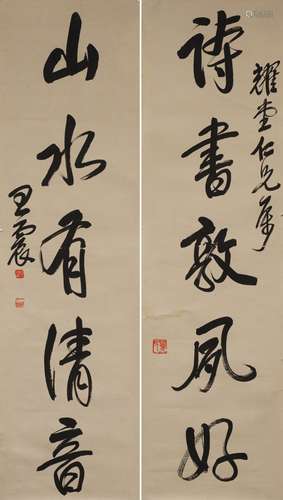 詩書敦夙好
耀堂仁兄屬
山水有清音
王震